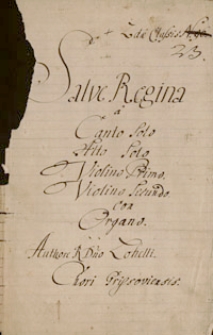 2dæ Classis No 90
23.
Salve Regina
à
Canto Solo
Alto Solo
Violino Primo.
Violino Secundo
Con
Organo.
Authore R Dño Zobelli.
Chori